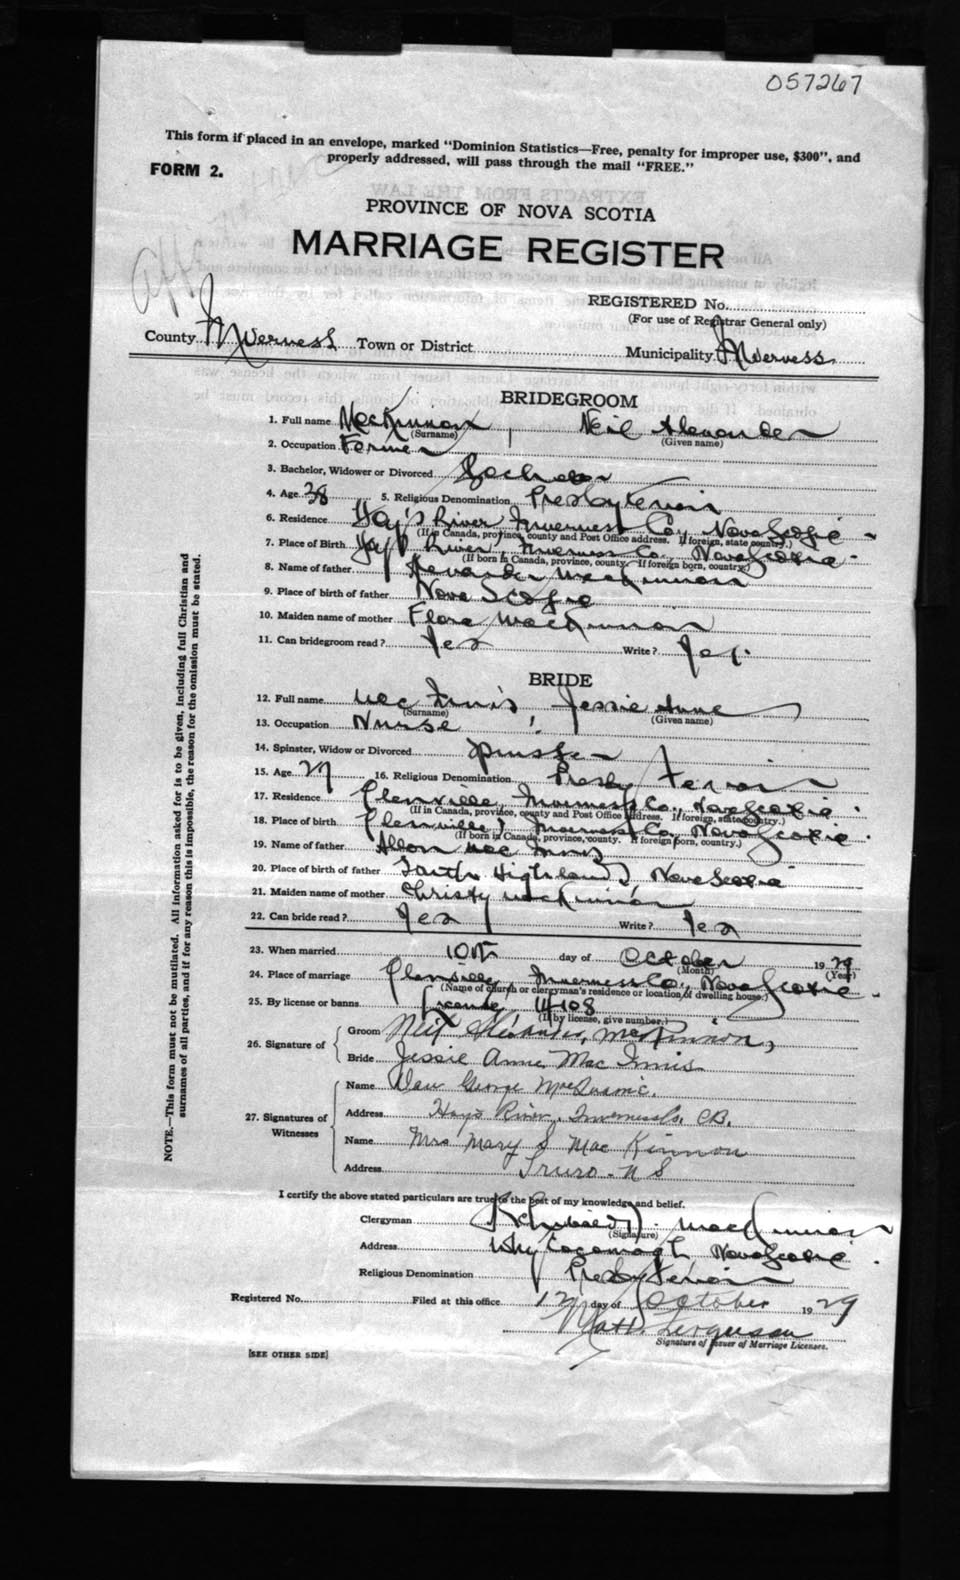 057267
This form if placed in an envelope, marked "Dominion Statistics—Free, penalty for improper use, $300", and
properly addressed, will pass through the mail "FREE."
FORM 2.
PROVINCE OF NOVA SCOTIA
MARRIAGE REGISTER
REGISTERED No.
(For use of Registrar General only)
County Inverness Town or District Municipality Inverness
BRIDEGROOM
1. Full name MacKinnon, Neil Alexander
(Surname) (Given name)
2. Occupation Farmer
3. Bachelor, Widower or Divorced Bachelor
4. Age 38 5. Religious Denomination Presbyterian
6. Residence Hay's River Inverness Co., Nova Scotia
(If in Canada, province, county and Post Office address. If foreign, state country.)
7. Place of Birth Hay's River, Inverness Co., Nova Scotia
(If born in Canada, province, county. If foreign born, country.)
8. Name of father Alexander MacKinnon
9. Place of birth of father Nova Scotia
10. Maiden name of mother Flora MacKinnon
11. Can bridegroom read? Yes Write? Yes.
BRIDE
12. Full name MacInnis, Jessie Anne
(Surname) (Given name)
13. Occupation Nurse
14. Spinster, Widow or Divorced Spinster
15. Age 29 16. Religious Denomination Presbyterian
17. Residence Glenville, Inverness Co., Nova Scotia.
(If in Canada, province, county and Post Office address. If foreign, state country.)
18. Place of birth Glenville, Inverness Co., Nova Scotia.
(If born in Canada, province, county. If foreign born, country.)
19. Name of father Allan MacInnis
20. Place of birth of father South Highlands, Nova Scotia
21. Maiden name of mother Christy MacKinnon
22. Can bride read? Yes Write? Yes
23. When married 10th day of October 1929
(Month) (Year)
24. Place of marriage Glenville, Inverness Co., Nova Scotia.
(Name of church or clergyman's residence or location of dwelling house.)
25. By license or banns License, 14108
(If by license, give number.)
26. Signature of Groom Neil Alexander, MacKinnon,
Bride Jessie Anne Mac Innis
27. Signatures of Witnesses
Name Dan George
Address Hays River, Inverness Co. C.B.
Name Mrs Mary S Mac Kinnon
Address Truro - N S
I certify the above stated particulars are true to the best of my knowledge and belief.
Clergyman Archibald D. MacKinnon
(Signature)
Address Whycocomagh Nova Scotia.
Religious Denomination Presbyterian
Registered No. Filed at this office 12 day of October 1929
Matt. Ferguson
Signature of Issuer of Marriage Licenses.
[SEE OTHER SIDE]
NOTE.—This form must not be mutilated. All information asked for is to be given, including full Christian and
surnames of all parties, and if for any reason this is impossible, the reason for the omission must be stated.